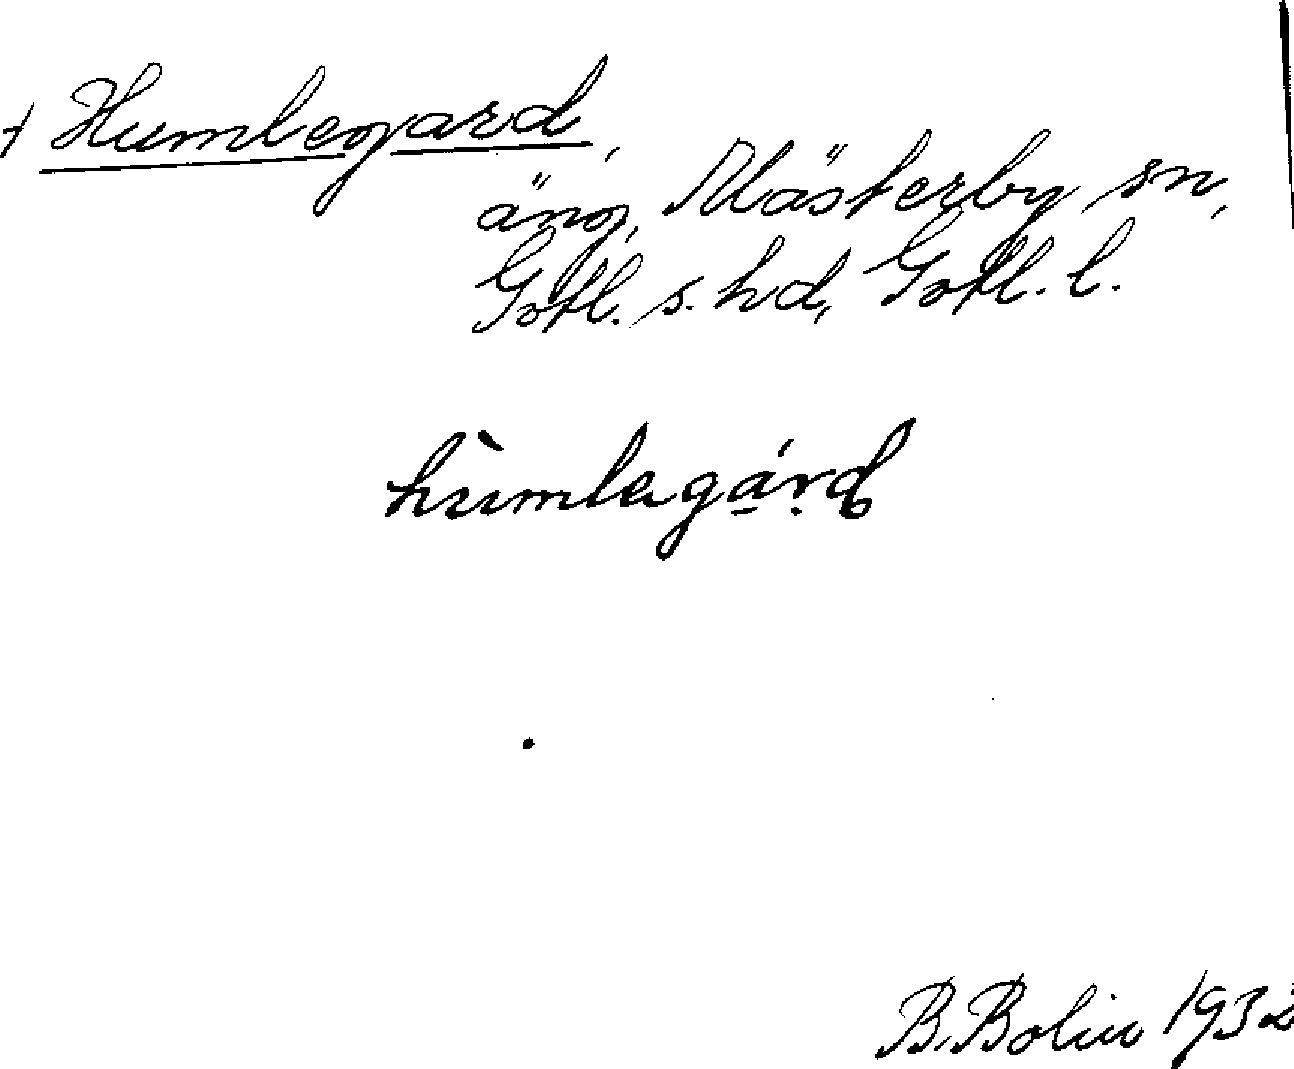 + Humlegard,
äng, Mästerby sn,
Gotl. s. hd, Gotl. l.
hùmlagá̠rd
B. Bolin 1932